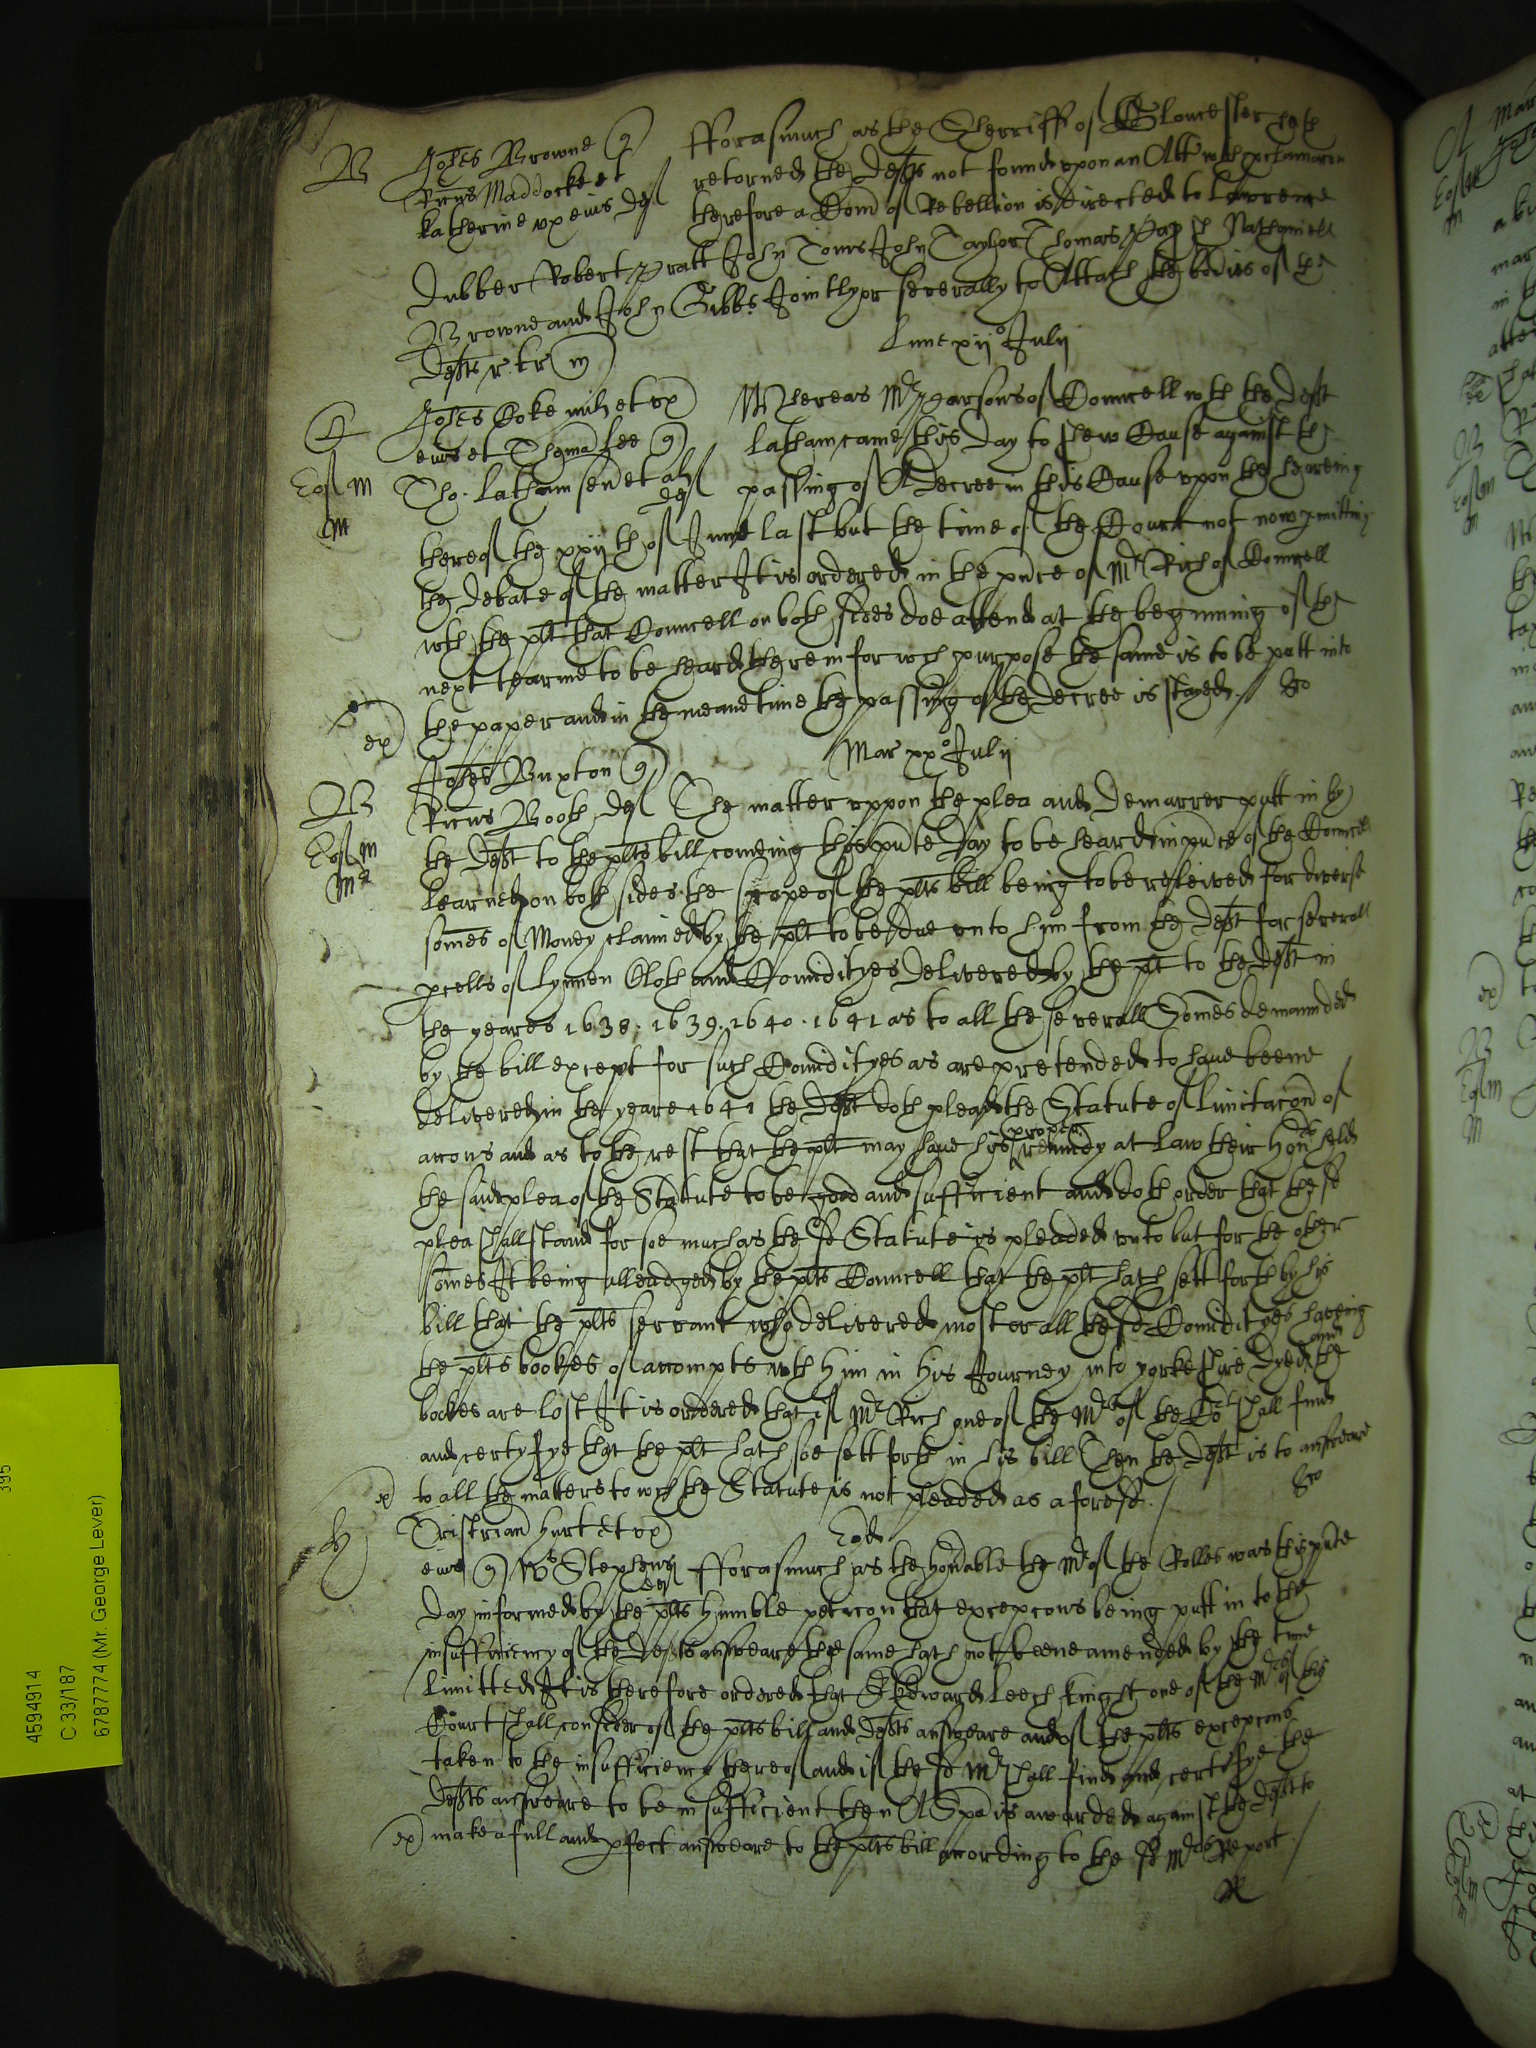 B Johes Browne q
Ricus Maddocke et
Katherine ux eius def
fforasmuch as the Sherriff of Gloucester hath
retorned the Defts not found upon an Att wth proclamacon
therefore a Com of Rebellion is directed to Lawrence
Dubber Robert Pratt John John Taylor Thomas Nathaniell
Browne and John Gibbs Jointly or severally to Attach the bodies of the
Defts r. tr m
Lune xij° Julij
C Johes Coke milt et ux
eius et Thoma Lee q
Eod m Tho. Latham sen et al
m def
Whereas Mr Parsons of Councell wth the Deft
Latham came this day to shew Cause against the
passing of A Decree in this Cause upon the heareing
thereof the xxijth of June last but the time of the Court not now pmitting
the debate of the matter It is ordered in the pnce of Mr Rich of Councell
wth the plt that Councell on both sides doe attend at the beginning of the
next tearme to be heard therein for wch purpose the same is to be putt into
ex the paper and in the meane time the passing of the decree is stayed. Ro
Mar xx° Julij
B Johes Buxton q
Ricus Booth def The matter uppon the plea and Demurrer putt in by
Eod m the Deft to the plts bill coming this pnte Day to be heard in pnce of the Councell
Mr learned on both sides the scope of the plts bill being to be releived for diverse
somes of Money claimed by the plt to be due unto him from the Deft for severall
pcells of Lynnen Cloth and Comodityes delivered by the plt to the Deft in
the yeares 1638. 1639. 1640. 1641 as to all the severall Somes demaunded
by the bill except for such Comodityes as are pretended to have beene
delivered in the yeare 1641 the Deft doth plead the Statute of Limitacon of
accons and as to the rest that the plt may have his proper remedy at Law their Honrs held
the said plea of the Statute to be good and sufficient and doth order that the sd
plea shall stand for soe much as the sd Statute is pleaded unto but for the other
somes It being alleadged by the plts Councell that the plt hath sett forth by his
bill that the plts servant who delivered most or all the sd Comodityes haveing
the plts bookes of accompts wth him in his Journey into Yorkeshire dyed and the
bookes are lost It is ordered that if Mr Rich one of the Mrs of the Cort shall find
and certyfye that the plt hath soe sett forth in his bill Then the Deft is to answeare
ex to all the matters to wch the Statute is not pleaded as aforesd. Ro
H Tristrian Hurt et ux Eod
eius q Wm Stephens
def
fforasmuch as the honoble the Mr of the Rolles was this pnte
day informed by the plts humble peticon that excepcons being putt in to the
insufficiency of the Defts answeare the same hath not beene amended by the time
limitted It is therefore ordered that Sr Edward Leech Kingt one of the Mrs of this
Court shall consider of the plts bill and Defts answeare and of the plts excepcons
taken to the insufficiency thereof and if the sd Mr shall find and certifye the
Defts answeare to be insufficient then A Spa is awarded against the Deft to
ex make a full and pfect answeare to the plts bill according to the sd Mrs Report.
R
4594914
C 33/187
6787774 (Mr. George Lever)
395